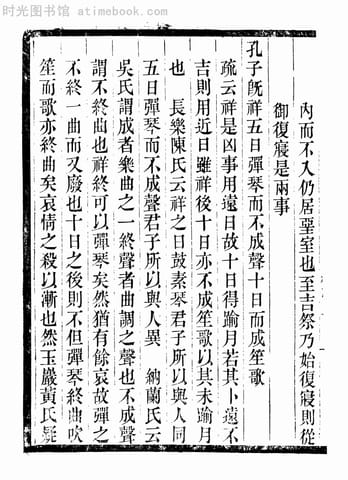 时光图书馆 - atimebook.com
內而不入仍居堊室也至吉祭乃始復寢則從
御復寢是兩事
孔子旣祥五日彈琴而不成聲十日而成笙歌
疏云祥是凶事用遠日故十日得踰月若其卜遠不
吉則用近日雖祥後十日亦不成笙歌以其未踰月
也　長樂陳氏云祥之日鼓素琴君子所以與人同
五日彈琴而不成聲君子所以與人異　納蘭氏云
吳氏謂成者樂曲之一終聲者曲調之聲也不成聲
謂不終曲也祥終可以彈琴矣然猶有餘哀故彈之
不終一曲而又廢也十日之後則不但彈琴終曲吹
笙而歌亦終曲矣哀情之殺以漸也然玉巖黃氏疑